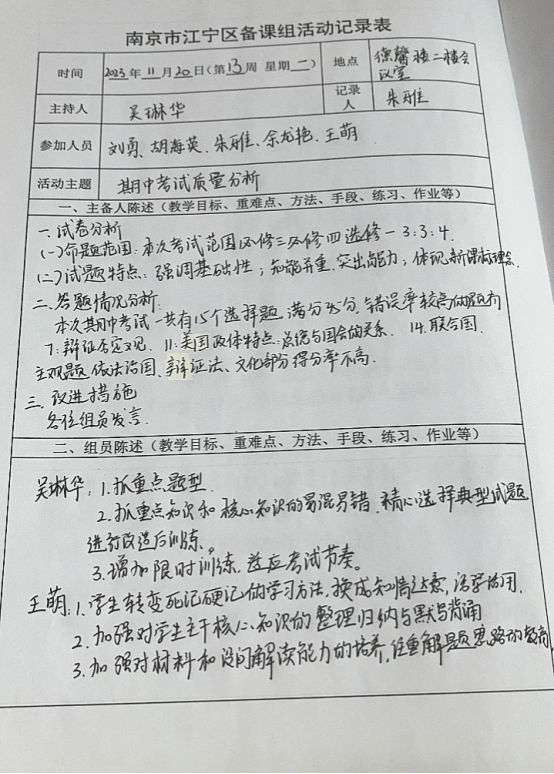 南京市江宁区备课组活动记录表
时间 2023年11月20日(第13周 星期二) 地点 德馨楼二楼会议室
主持人 吴琳华 记录人 朱雅
参加人员 刘勇、胡海英、朱雅、余龙艳、王萌
活动主题 期中考试质量分析
一、主备人陈述（教学目标、重难点、方法、手段、练习、作业等）
一、试卷分析
(一)命题范围：本次考试范围必修三必修四选修一 3:3:4.
(二)试题特点：强调基础性；知能并重，突出能力；体现新课标理念
二、答题情况分析.
本次期中考试一共有15个选择题，满分45分，错误率较高的题有
7:辩证否定观. 11:美国政体特点：总统与国会的关系. 14.联合国.
主观题依法治国、辩证法、文化部分得分率不高.
三、改进措施
各位组员发言.
二、组员陈述（教学目标、重难点、方法、手段、练习、作业等）
吴琳华：1.抓重点题型.
2.抓重点知识和核心知识的易混易错，精心选择典型试题
进行改造后训练。
3.增加限时训练，适应考试节奏。
王萌：1.学生转变死记硬记的学习方法，换成知情达意，活学活用.
2.加强对学生主干核心知识的整理归纳与默写背诵
3.加强对材料和设问解读能力的培养，注重解题思路的